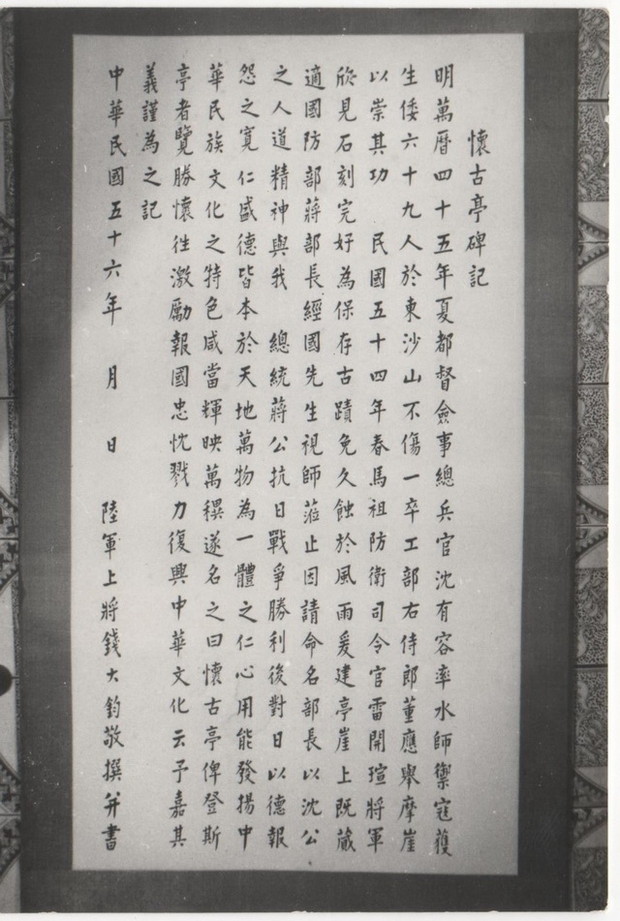 懷古亭碑記
明萬曆四十五年夏都督僉事總兵官沈有容率水師禦寇獲
生倭六十九人於東沙山不傷一卒工部右侍郎董應舉摩崖
以崇其功　民國五十四年春馬祖防衛司令官雷開瑄將軍
欣見石刻完好為保存古蹟免久蝕於風雨爰建亭崖上既蕆
適國防部蔣部長經國先生視師蒞止因請命名部長以沈公
之人道精神與我　總統蔣公抗日戰爭勝利後對日以德報
怨之寬仁盛德皆本於天地萬物為一體之仁心用能發揚中
華民族文化之特色咸當輝映萬禩遂名之曰懷古亭俾登斯
亭者覽勝懷往激勵報國忠忱戮力復興中華文化云予嘉其
義謹為之記
中華民國五十六年　月　日　陸軍上將錢大鈞敬撰并書